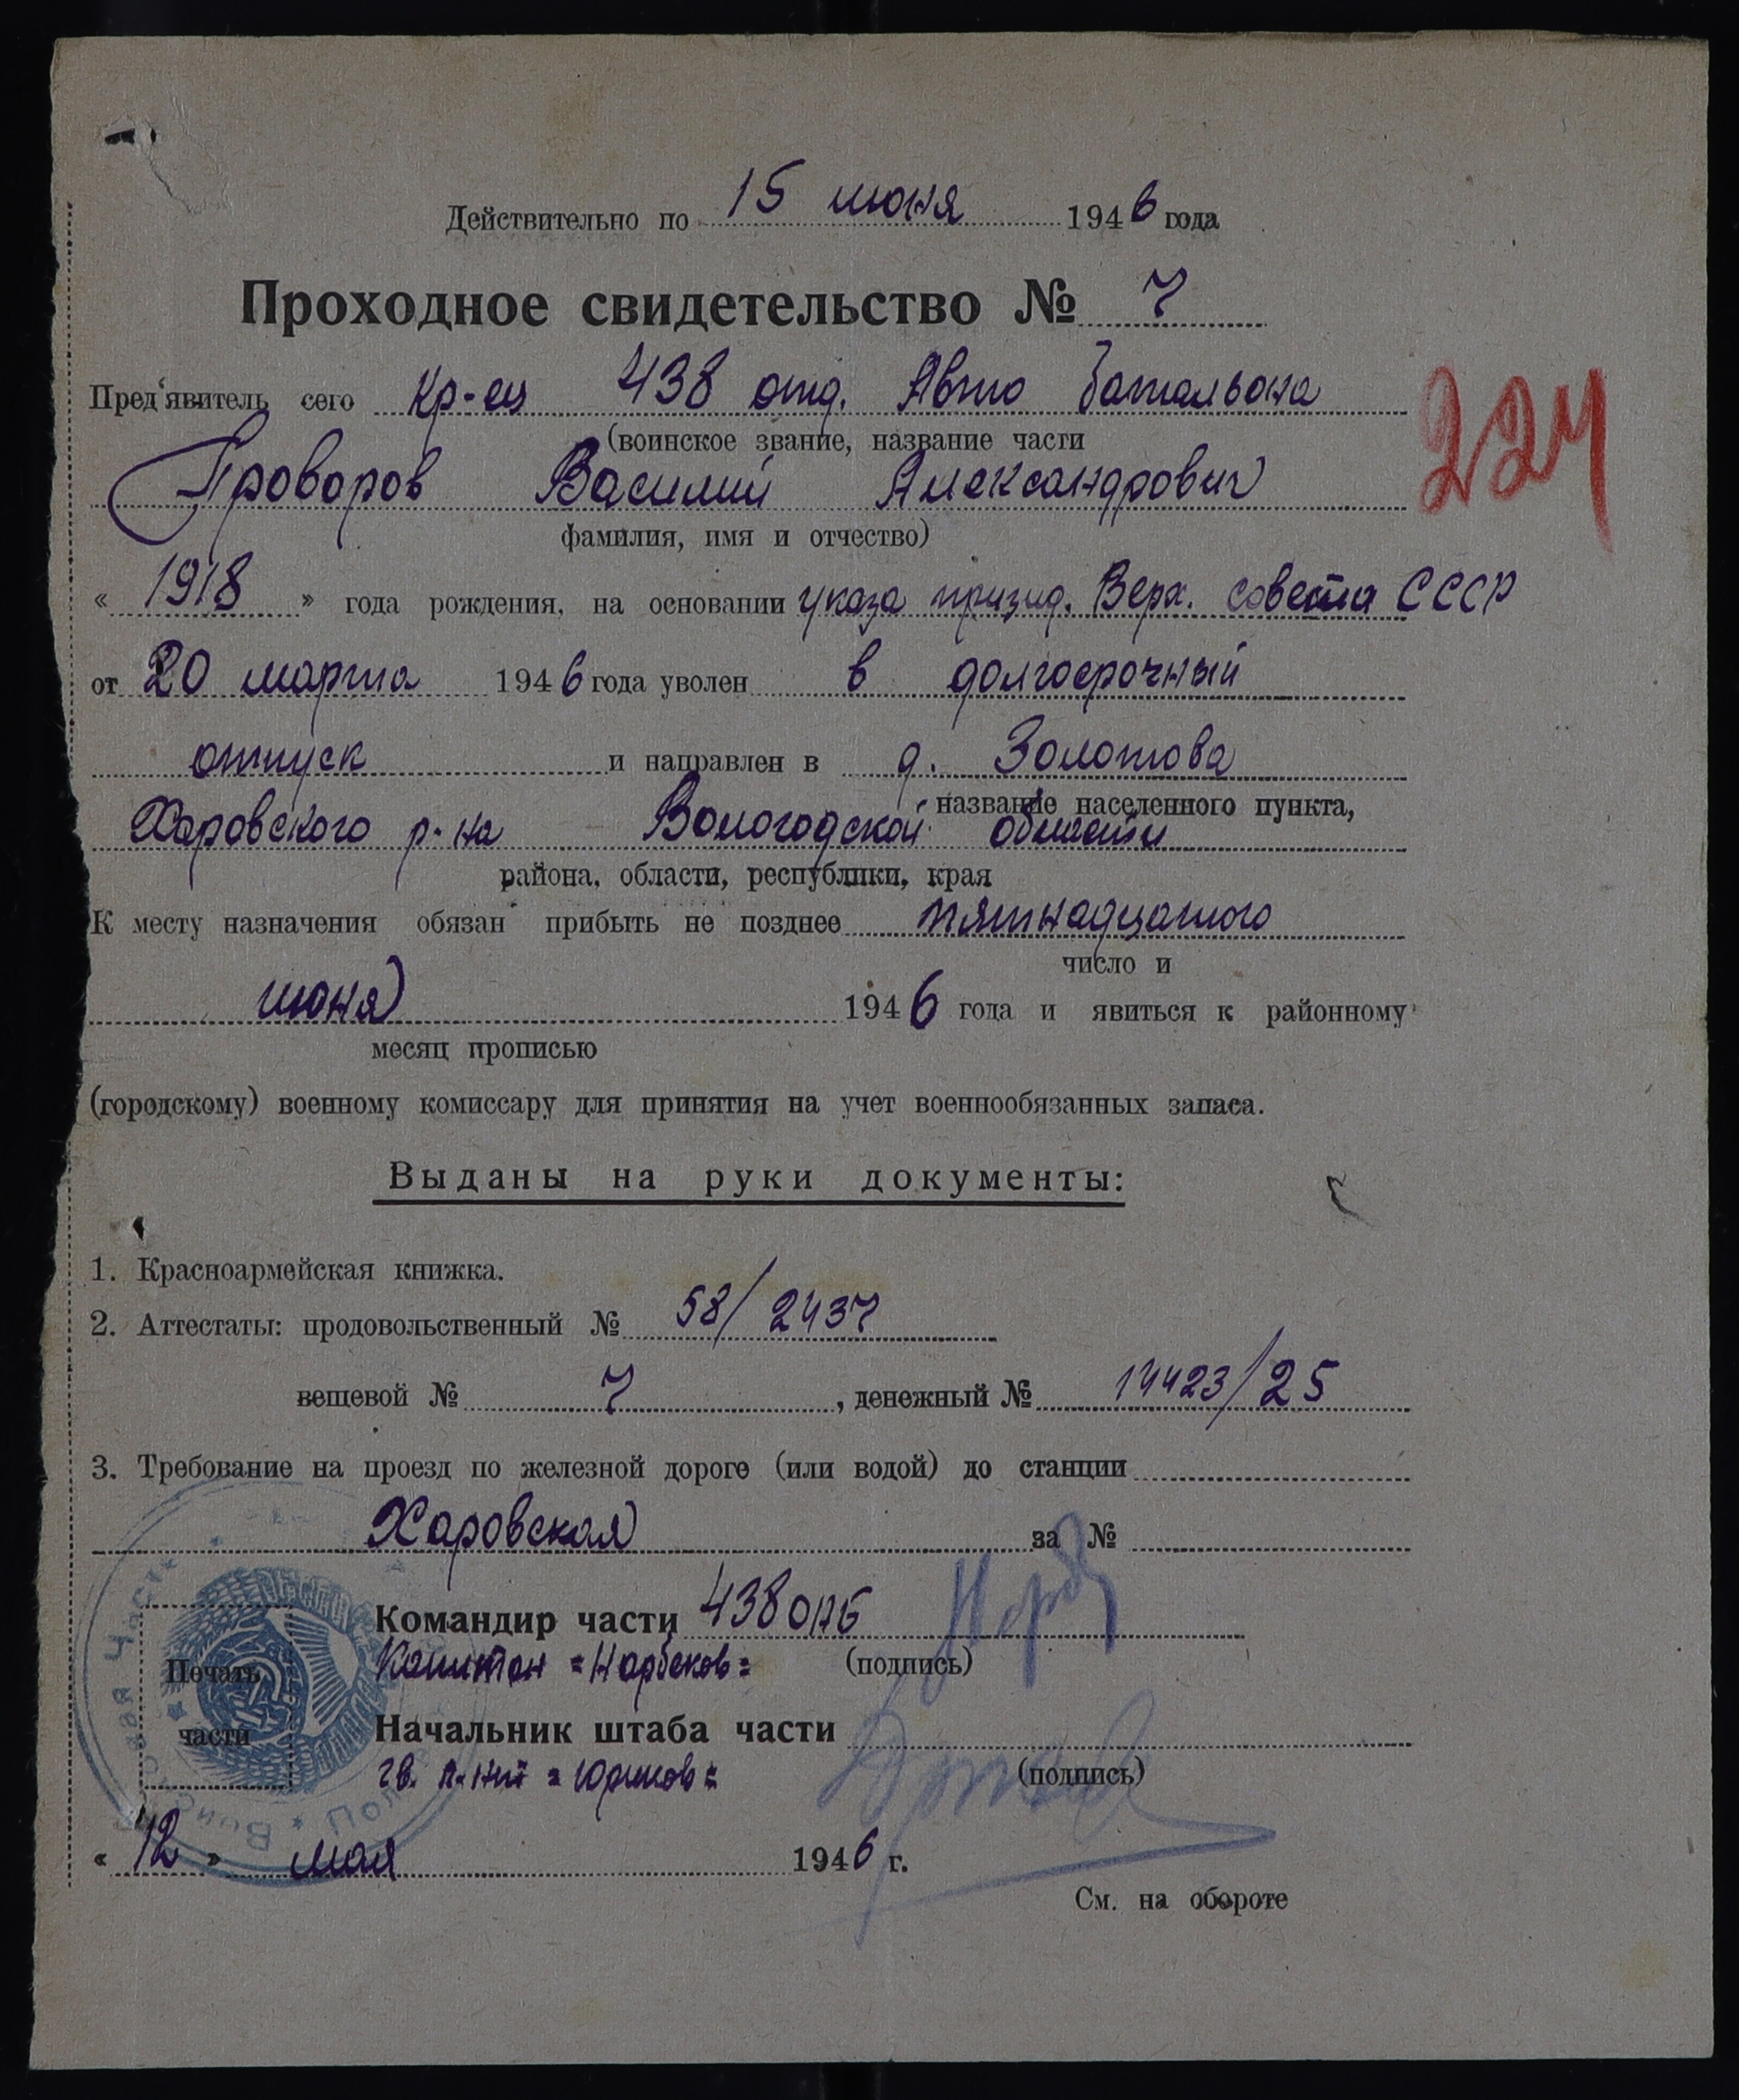 Действительно по 15 июня 1946 года
Проходное свидетельство № 7
Пред'явитель сего кр-ец 438 отд. Авто батальона
(воинское звание, название части
Проворов Василий Александрович
224
фамилия, имя и отчество)
« 1918 » года рождения, на основании указа призид. Верх. совета СССР
от 20 марта 1946 года уволен в долгосрочный
отпуск и направлен в д. Золотова
название населенного пункта,
Харовского р-на Вологодской области
района, области, республики, края
К месту назначения обязан прибыть не позднее пятнадцатого
число и
июня 1946 года и явиться к районному
месяц прописью
(городскому) военному комиссару для принятия на учет военнообязанных запаса.
Выданы на руки документы:
1. Красноармейская книжка.
2. Аттестаты: продовольственный № 58/2437
вещевой № 7, денежный № 14423/25
3. Требование на проезд по железной дороге (или водой) до станции
Харовская за №
Командир части 438 ОАБ
Капитан =Нарбеков=
(подпись)
Печать
части
Начальник штаба части
гв. л-нт
(подпись)
« 12 » мая 1946 г.
См. на обороте